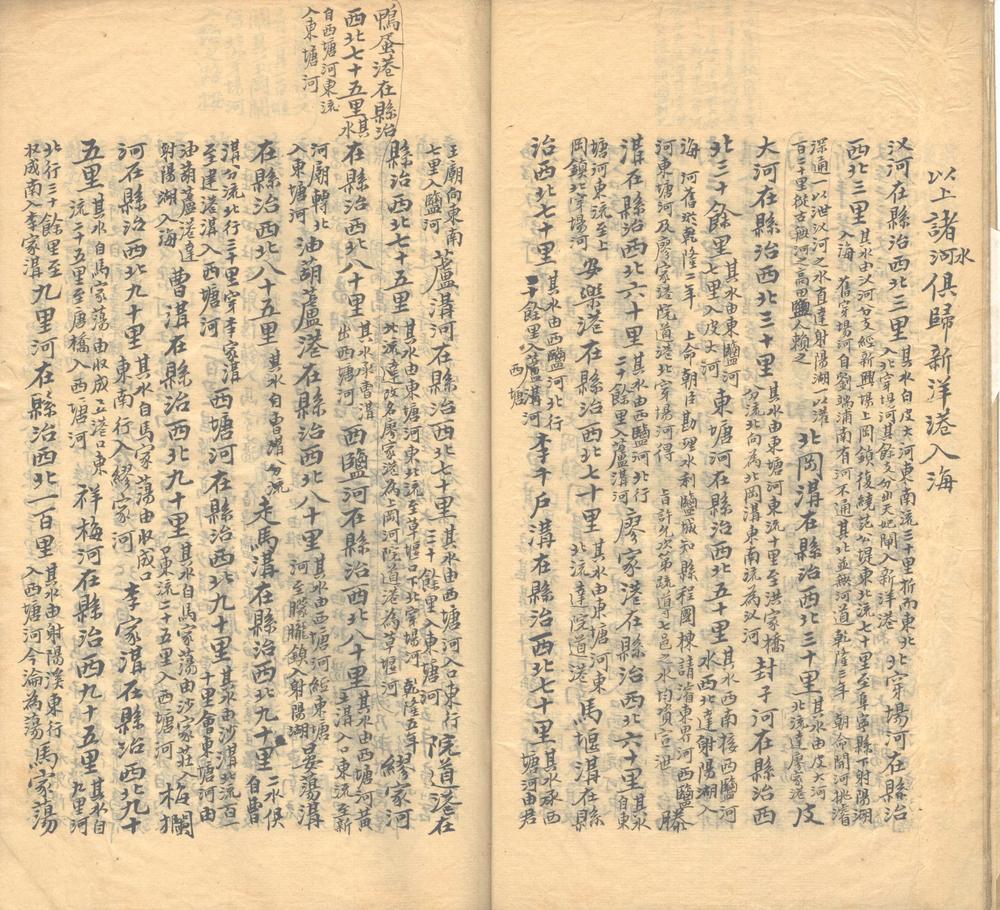 以上諸河水俱歸新洋港入海
汊河在縣治西北三里其水自皮大河東南流三十里折而東北入北穿場河其餘支分出天妃閘入新洋港北穿場河在縣治
西北三里其水由汊河分支經新興場上岡鎮後繞范公堤東北流七十里至阜寧縣下射陽湖入海舊穿場河自劉端浦南有河不通其北並無河道乾隆三年朝命開河挑濬
深通一以泄汊河之水直達射陽湖一以灌百二十里從古無河之高田鹽人賴之北岡溝在縣治西北三十里其水由皮大河北流達廖家港皮
大河在縣治西北三十里其水由東塘河東流十里至洪家橋分流北向為北岡溝東南流為汊河封子河在縣治西
北三十餘里其水由東鹽河七里入皮大河東塘河在縣治西北五十里其水西南接西鹽河水西北達射陽湖入
海河舊淤乾隆二年上命朝臣勘理水利鹽城知縣程國棟請濬東界河西鹽河東塘河及廖家港院道港北穿場河得旨許允次第疏導七邑之水均資宣泄滕
溝在縣治西北六十里其水由西鹽河北行二十餘里入蘆溝河廖家港在縣治西北六十里其水自東
塘河東流至上岡鎮北穿場河安樂港在縣治西北七十里其水由東塘河東北流達院道港馬堰溝在縣
治西北七十里其水由西鹽河北行二十餘里入蘆溝河西塘李千戶溝在縣治西北七十里其水承西塘河由君
王廟向東南七里入鹽河蘆溝河在縣治西北七十里其水由西塘河入口東行三十餘里入東塘河院道港在
縣治西北七十五里其水由東塘河東北流至草堰口下北穿場河乾隆五年北流達改名廖家港為上岡河院道港為草堰河繆家河
在縣治西北八十里其水承曹溝出西塘河西鹽河在縣治西北八十里其水由西塘河黃土溝入口東流至新
河廟轉北入東塘河油葫蘆港在縣治西北八十里其水由西塘河經東塘河至朦朧鎮入射陽湖晏蕩溝
在縣治西北八十五里其水自曹溝分流走馬溝在縣治西北九十里二水俱自曹
溝分流北行三十里穿李家溝至建港溝入西塘河西塘河在縣治西北九十里其水由沙溝北流百二十里會東塘河由
油葫蘆港達射陽湖入海曹溝在縣治西北九十里其水自馬家蕩由沙家莊入口東流二十五里入西塘河梅欄
河在縣治西北九十里其水自馬家蕩由收成口東南行入繆家河李家溝在縣治西北九十
五里其水自馬家蕩由收成立港口東流二十五里至唐橋入西塘河祥梅河在縣治西九十五里其水自九里河
北行三十餘里至收成南入李家溝九里河在縣治西北一百里其水由射陽溪東行入西塘河今淪為蕩馬家蕩
鴨蛋港在縣治
西北七十五里其水
自西塘河東流
入東塘河